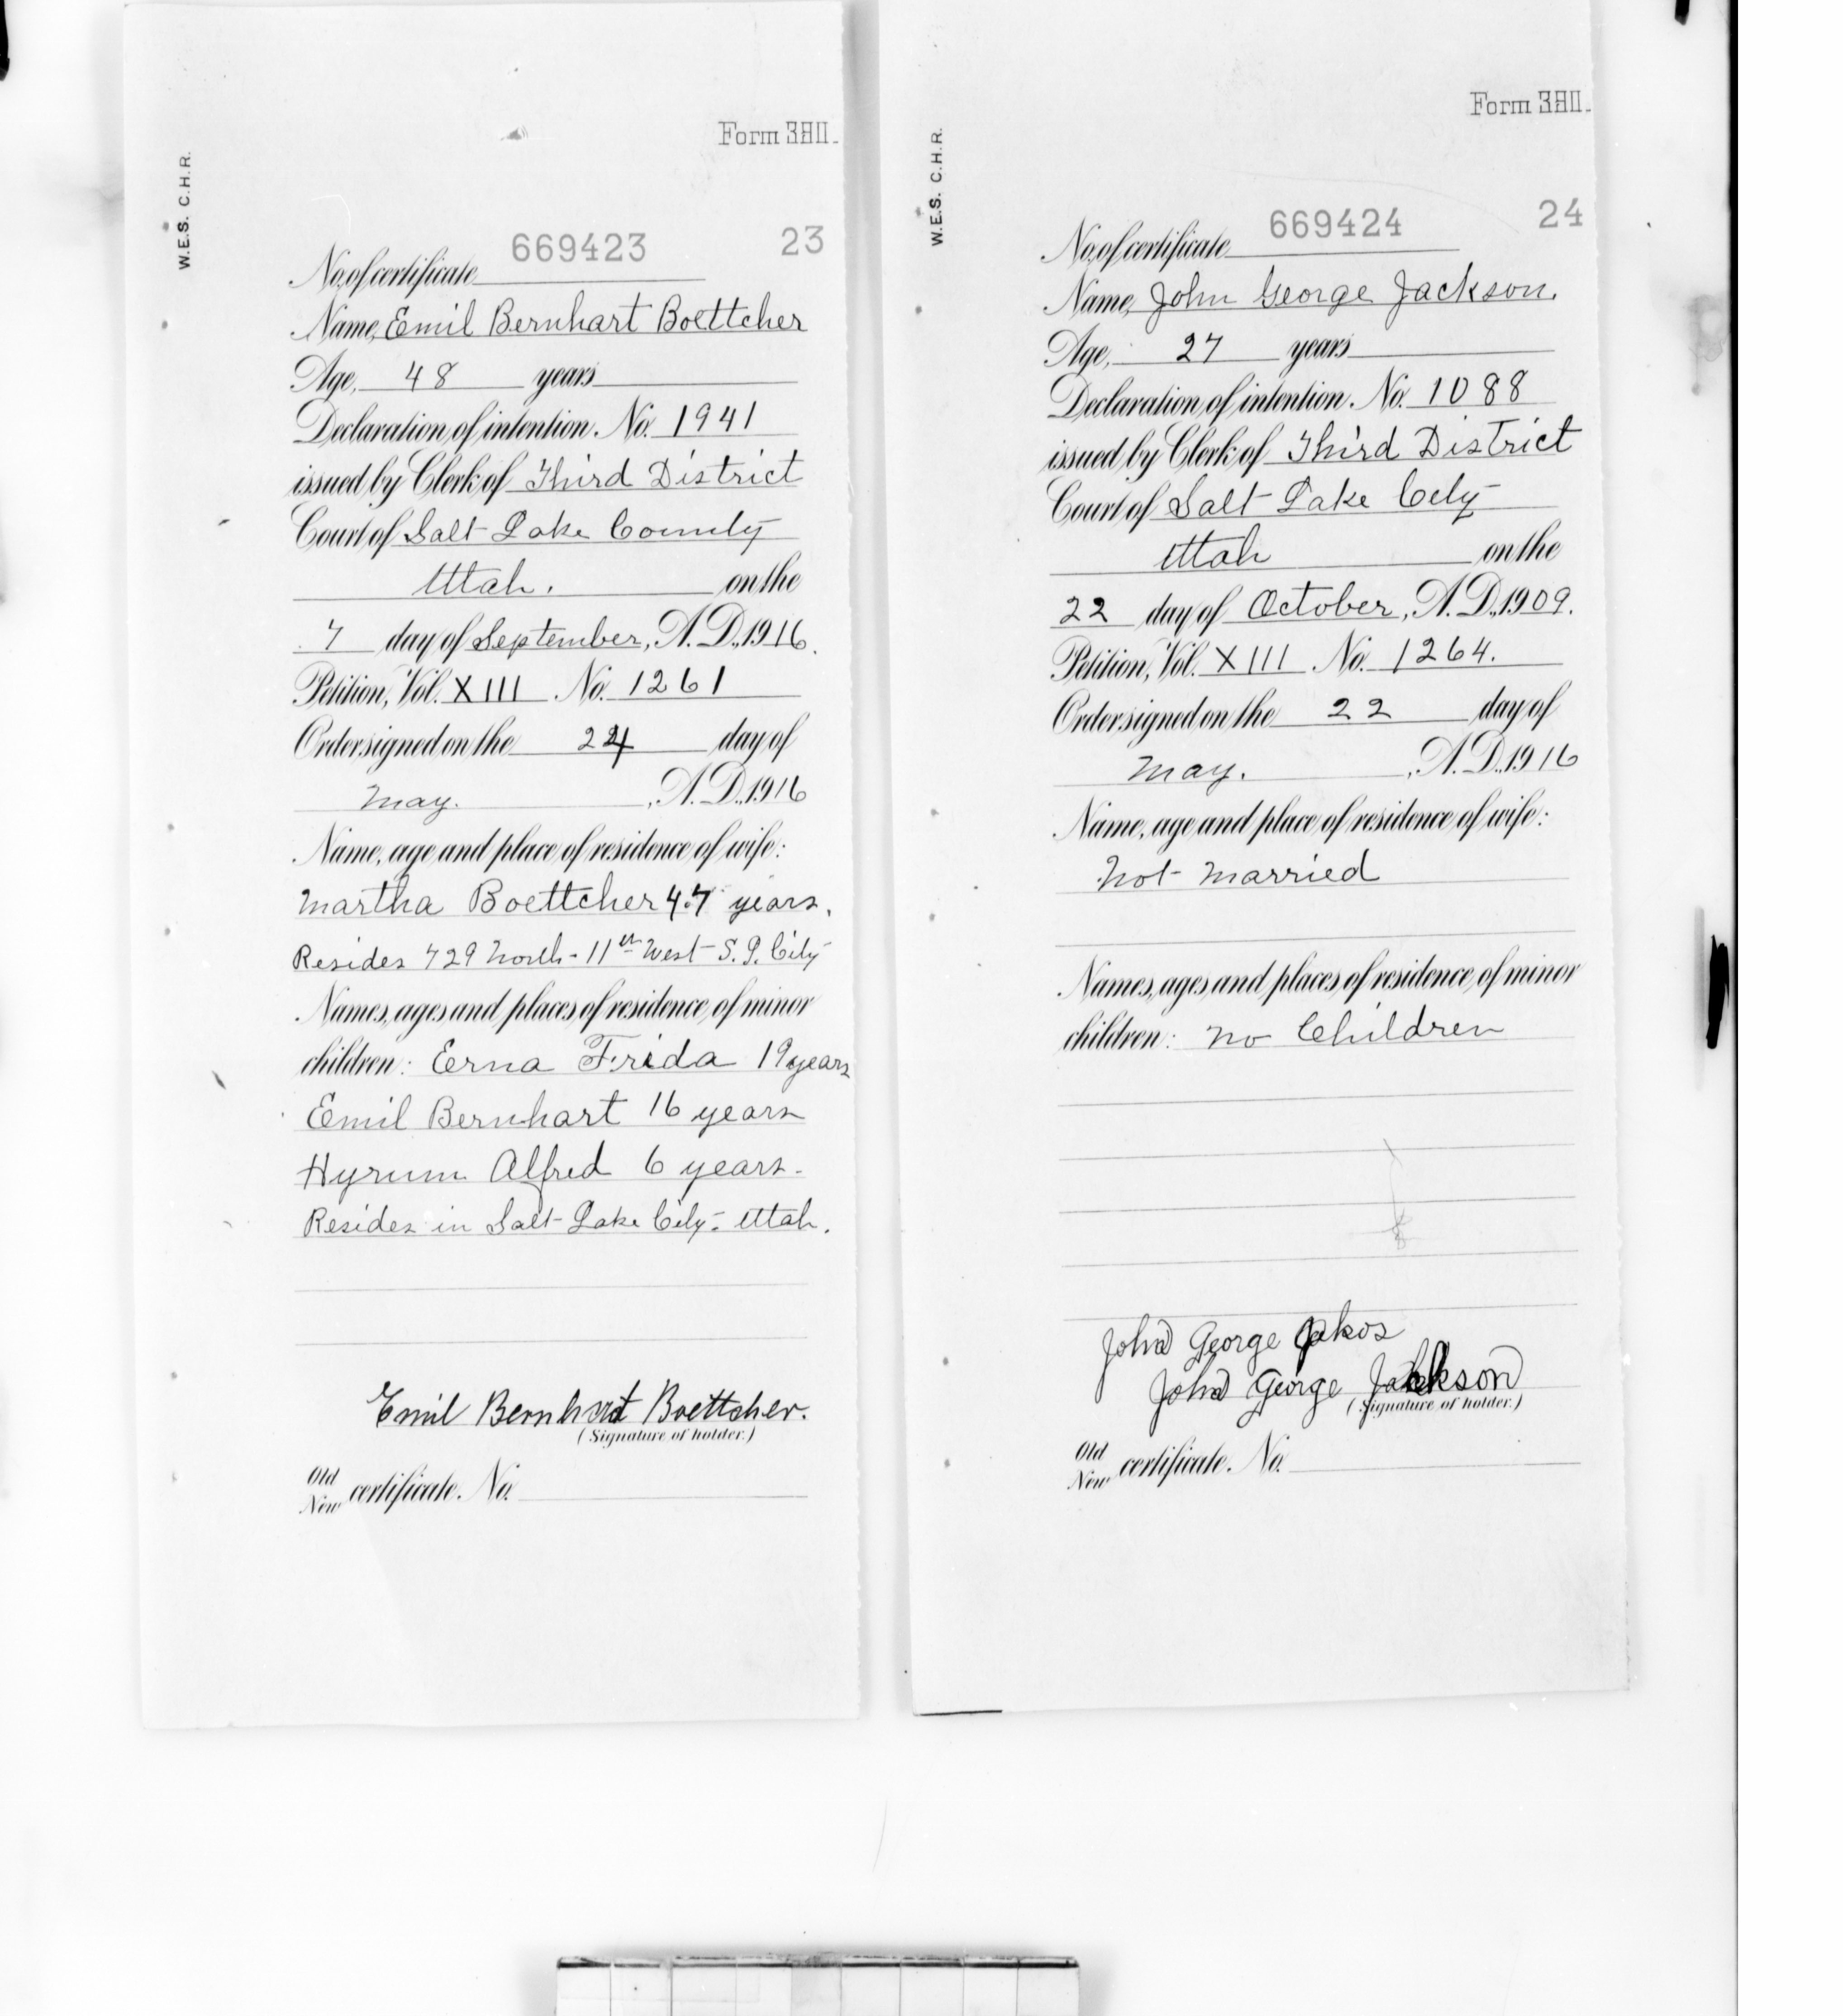 Form 380.
W.E.S. C.H.R.
669423 23
No. of certificate
Name, Emil Bernhart Boettcher
Age, 48 years
Declaration of intention. No. 1941
issued by Clerk of Third District
Court of Salt Lake County
Utah. on the
7 day of September, A.D., 1916.
Petition, Vol. XIII No. 1261
Order signed on the 24 day of
May. , A.D., 1916
Name, age and place of residence of wife:
Martha Boettcher 47 years.
Resides 729 North - 11th West S. L. City
Names, ages and places of residence of minor
children: Erna Frida 19 years
Emil Bernhart 16 years
Hyrum Alfred 6 years.
Resides in Salt Lake City - Utah.
Emil Bernhart Boettcher.
(Signature of holder.)
Old
New certificate. No.
Form 380.
W.E.S. C.H.R.
669424 24
No. of certificate
Name, John George Jackson.
Age, 27 years
Declaration of intention. No. 1088
issued by Clerk of Third District
Court of Salt Lake City
Utah on the
22 day of October, A.D., 1909.
Petition, Vol. XIII No. 1264.
Order signed on the 22 day of
May. , A.D., 1916
Name, age and place of residence of wife:
Not Married
Names, ages and places of residence of minor
children: No Children
John George
John George Jackson
(Signature of holder.)
Old
New certificate. No.